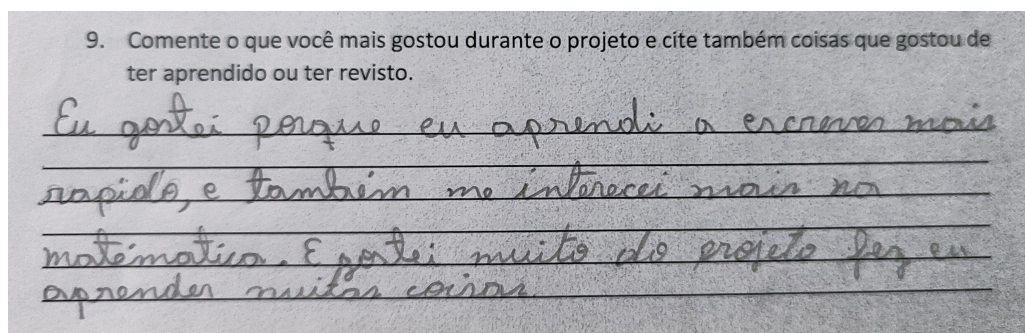 9. Comente o que você mais gostou durante o projeto e cite também coisas que gostou de
ter aprendido ou ter revisto.
Eu gostei porque eu aprendi a escrever mais
rapido, e também me interecei mais na
matématica. E gostei muito do projeto fez eu
aprender muitas coisas